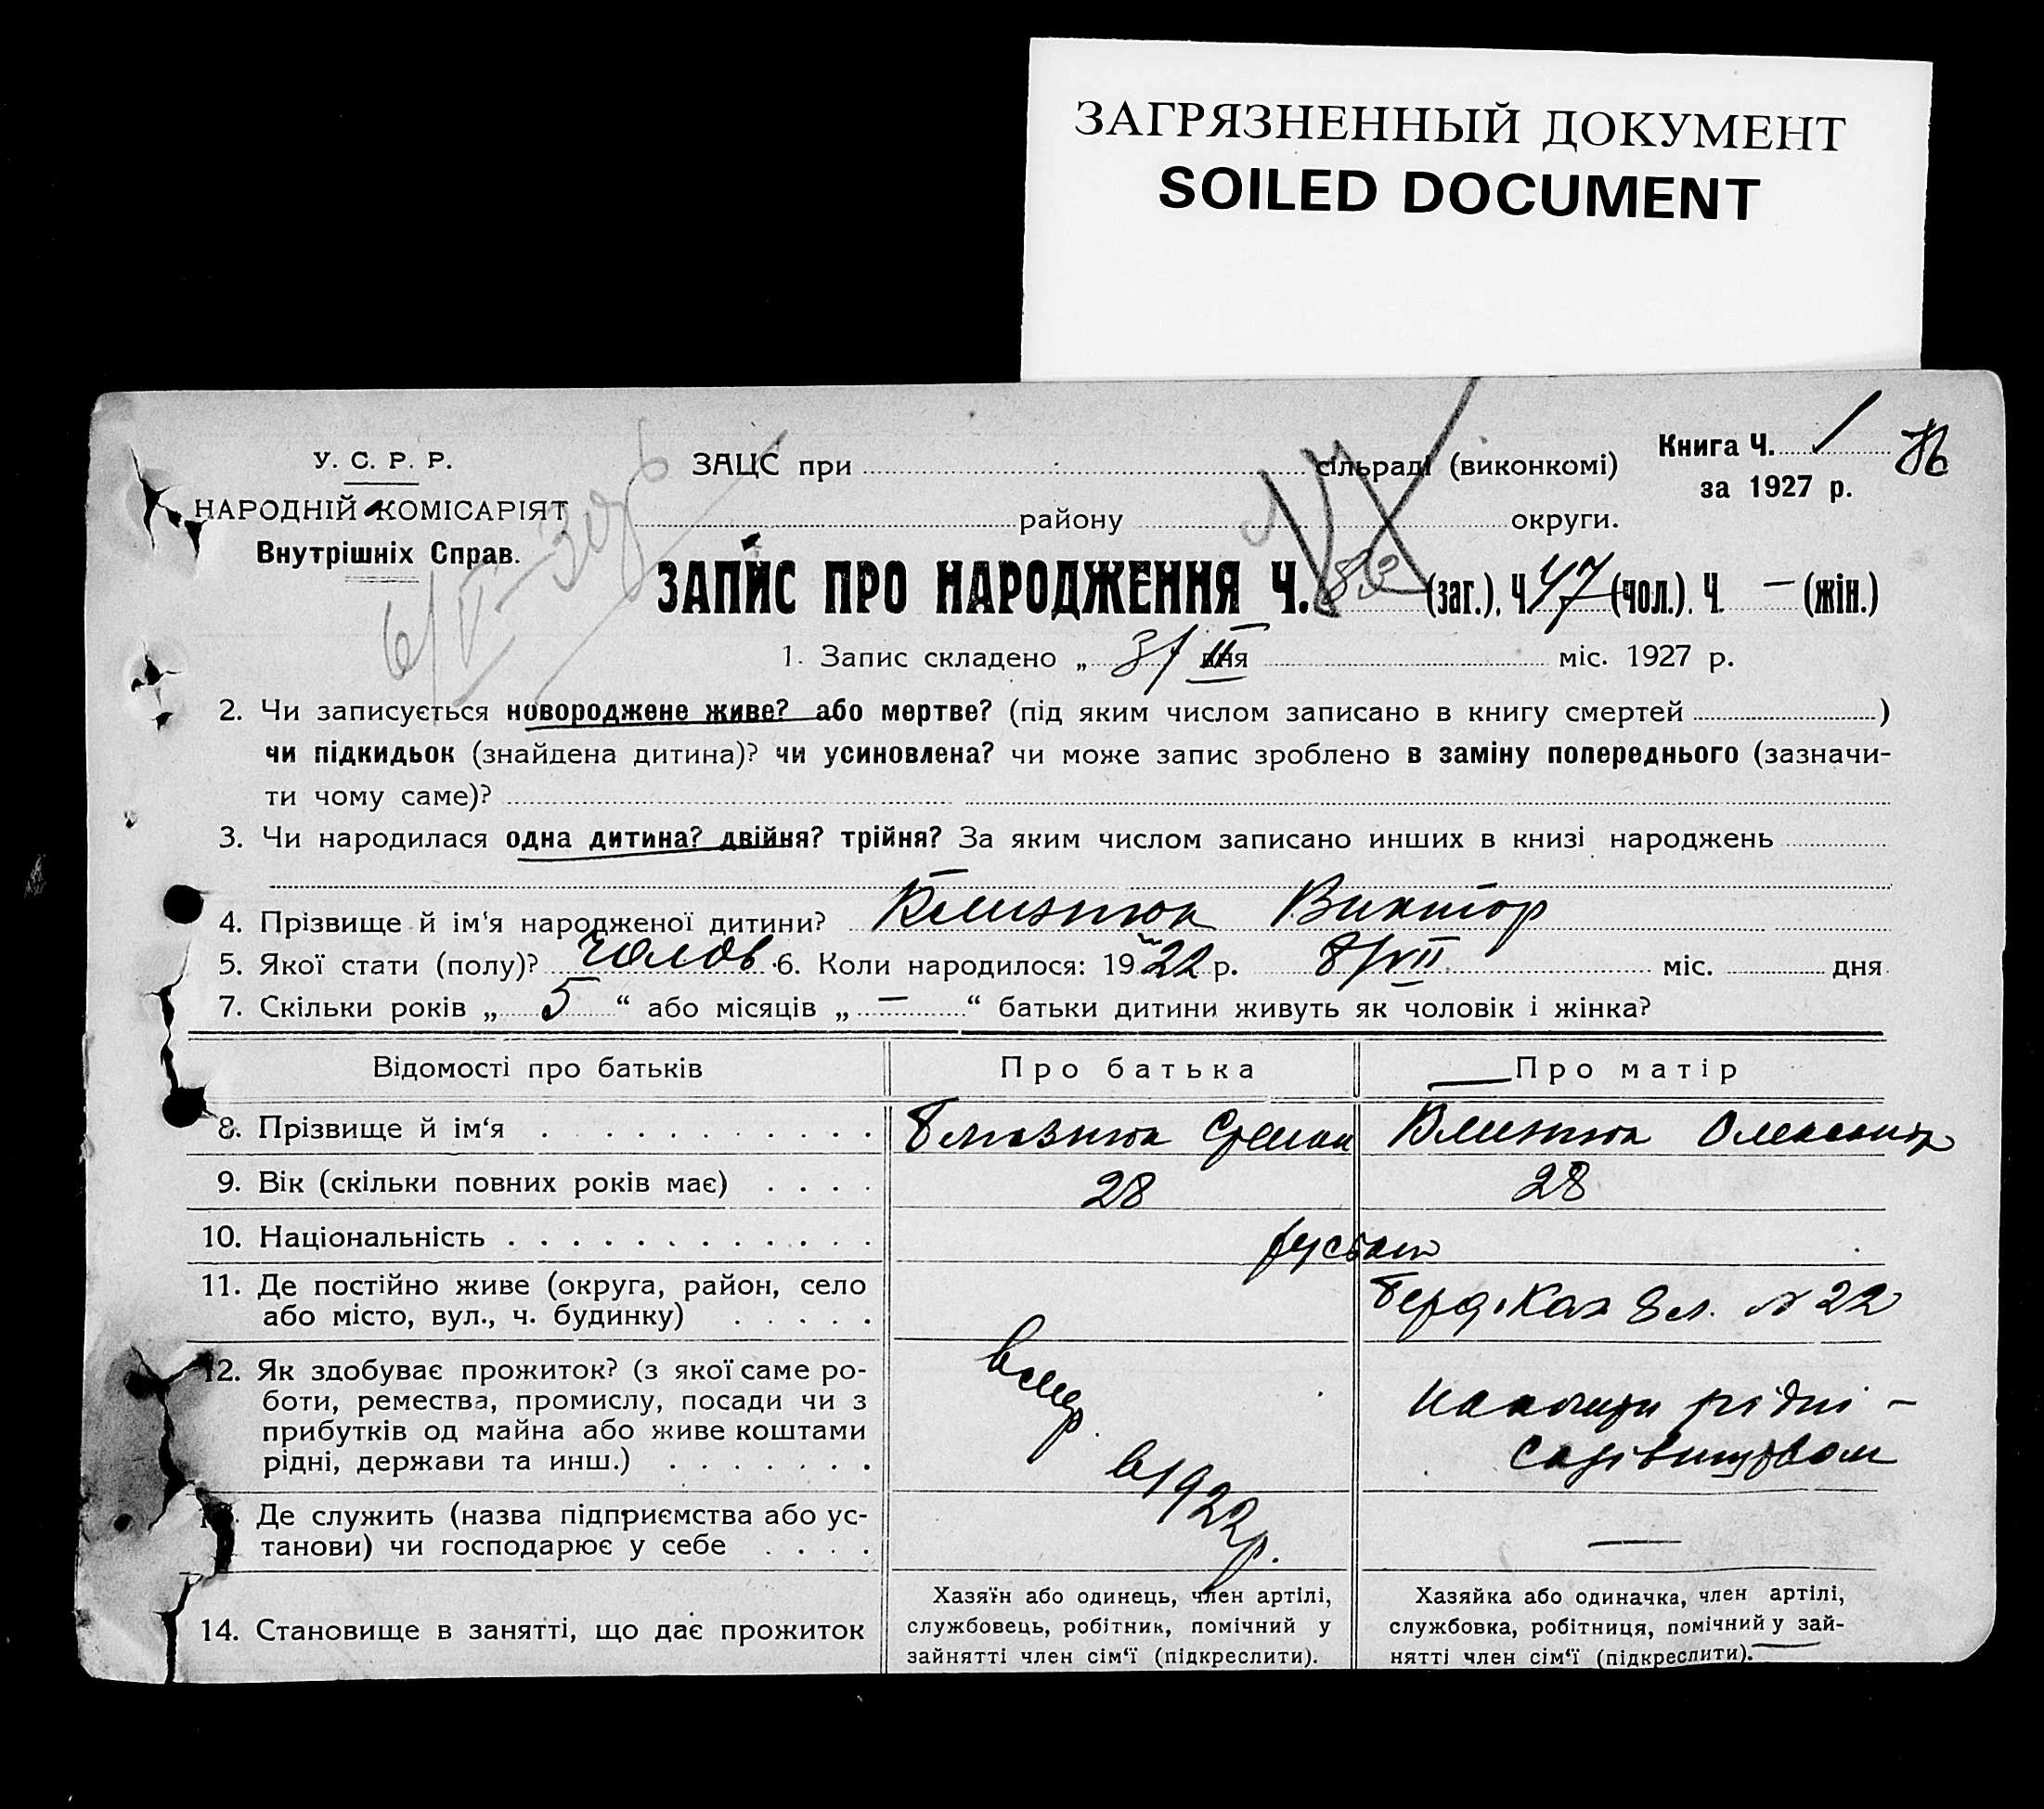 ЗАГРЯЗНЕННЫЙ ДОКУМЕНТ
SOILED DOCUMENT
У. С. Р. Р.
НАРОДНІЙ КОМІСАРІЯТ
Внутрішніх Справ.
ЗАЦС при сільраді (виконкомі)
району округи.
Книга Ч. 1
за 1927 р.
ЗАПИС ПРО НАРОДЖЕННЯ Ч. (заг.), Ч. 47 (чол.). Ч. — (жін.)
1. Запис складено „ 31 II дня міс. 1927 р.
2. Чи записується новороджене живе? або мертве? (під яким числом записано в книгу смертей )
чи підкидьок (знайдена дитина)? чи усиновлена? чи може запис зроблено в заміну попереднього (зазначи-
ти чому саме)?
3. Чи народилася одна дитина? двійня? трійня? За яким числом записано инших в книзі народжень
4. Прізвище й ім‘я народженої дитини? Близнюк Виктор
5. Якої стати (полу)? чолов. 6. Коли народилося: 1922 р. 8/VII міс. дня
7. Скільки років „ 5 “ або місяців „ — “ батьки дитини живуть як чоловік і жінка?
Відомості про батьків Про батька Про матір
8. Прізвище й ім‘я Близнюк Близнюк
9. Вік (скільки повних років має) 28 28
10. Національність
11. Де постійно живе (округа, район, село
або місто, вул., ч. будинку) № 22
12. Як здобуває прожиток? (з якої саме ро-
боти, ремества, промислу, посади чи з
прибутків од майна або живе коштами
рідні, держави та инш.)
вмер.
в 1922 р.
рідні —
13. Де служить (назва підприємства або ус-
танови) чи господарює у себе —
14. Становище в занятті, що дає прожиток
Хазяїн або одинець, член артілі,
службовець, робітник, помічний у
зайнятті член сім‘ї (підкреслити).
Хазяйка або одиначка, член артілі,
службовка, робітниця, помічний у зай-
нятті член сім‘ї (підкреслити).